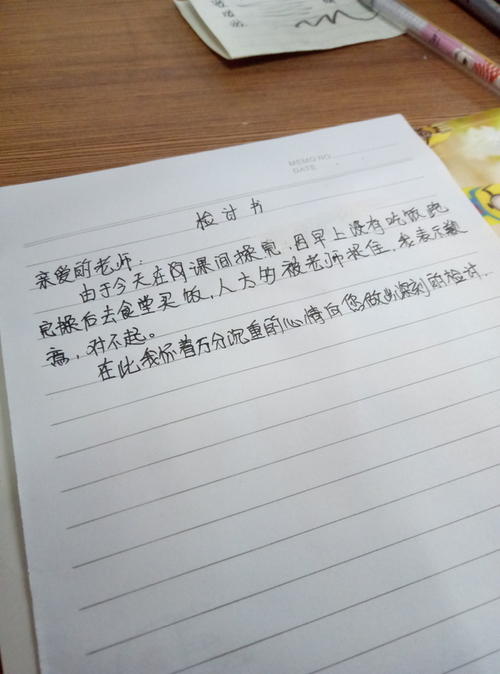 MEMO NO.
DATE
检讨书
亲爱的老师:
由于今天在课间操完,因早上没有吃饭跑
完操后去食堂买饭,人太多被老师捉住,我表示歉
意,对不起。
在此我怀着万分沉重的心情向您做出深刻的检讨.